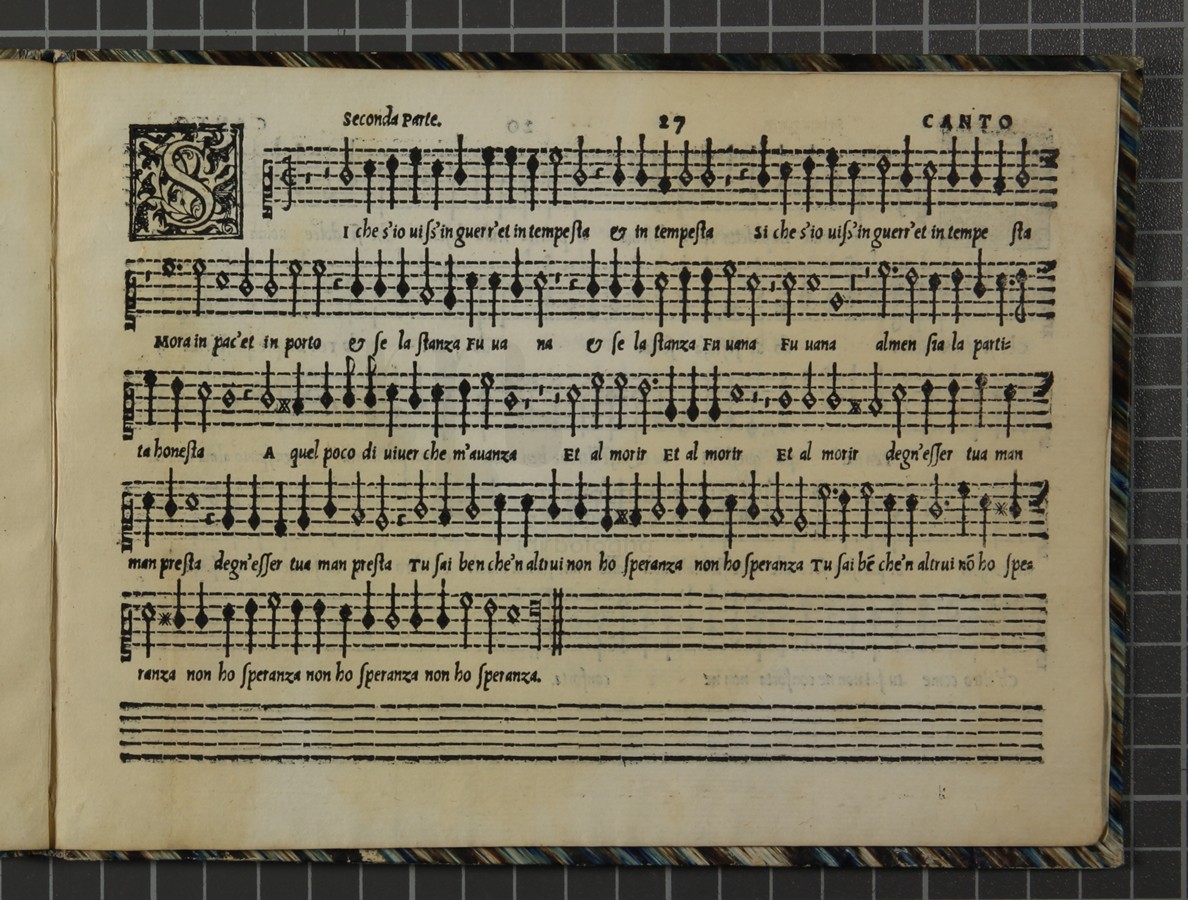 Seconda Parte. 27 CANTO
SI che s'io uiss'in guerr'et in tempesta & in tempesta Si che s'io uiss'in guerr'et in tempe sta
Mora in pac'et in porto & se la stanza Fu ua na & se la stanza Fu uana Fu uana almen sia la parti=
ta honesta A quel poco di uiuer che m'auanza Et al morir Et al morir Et al morir degn'esser tua man
man presta degn'esser tua man presta Tu sai ben che'n altrui non ho speranza non ho speranza Tu sai bē che'n altrui nō ho spe=
ranza non ho speranza non ho speranza non ho speranza.